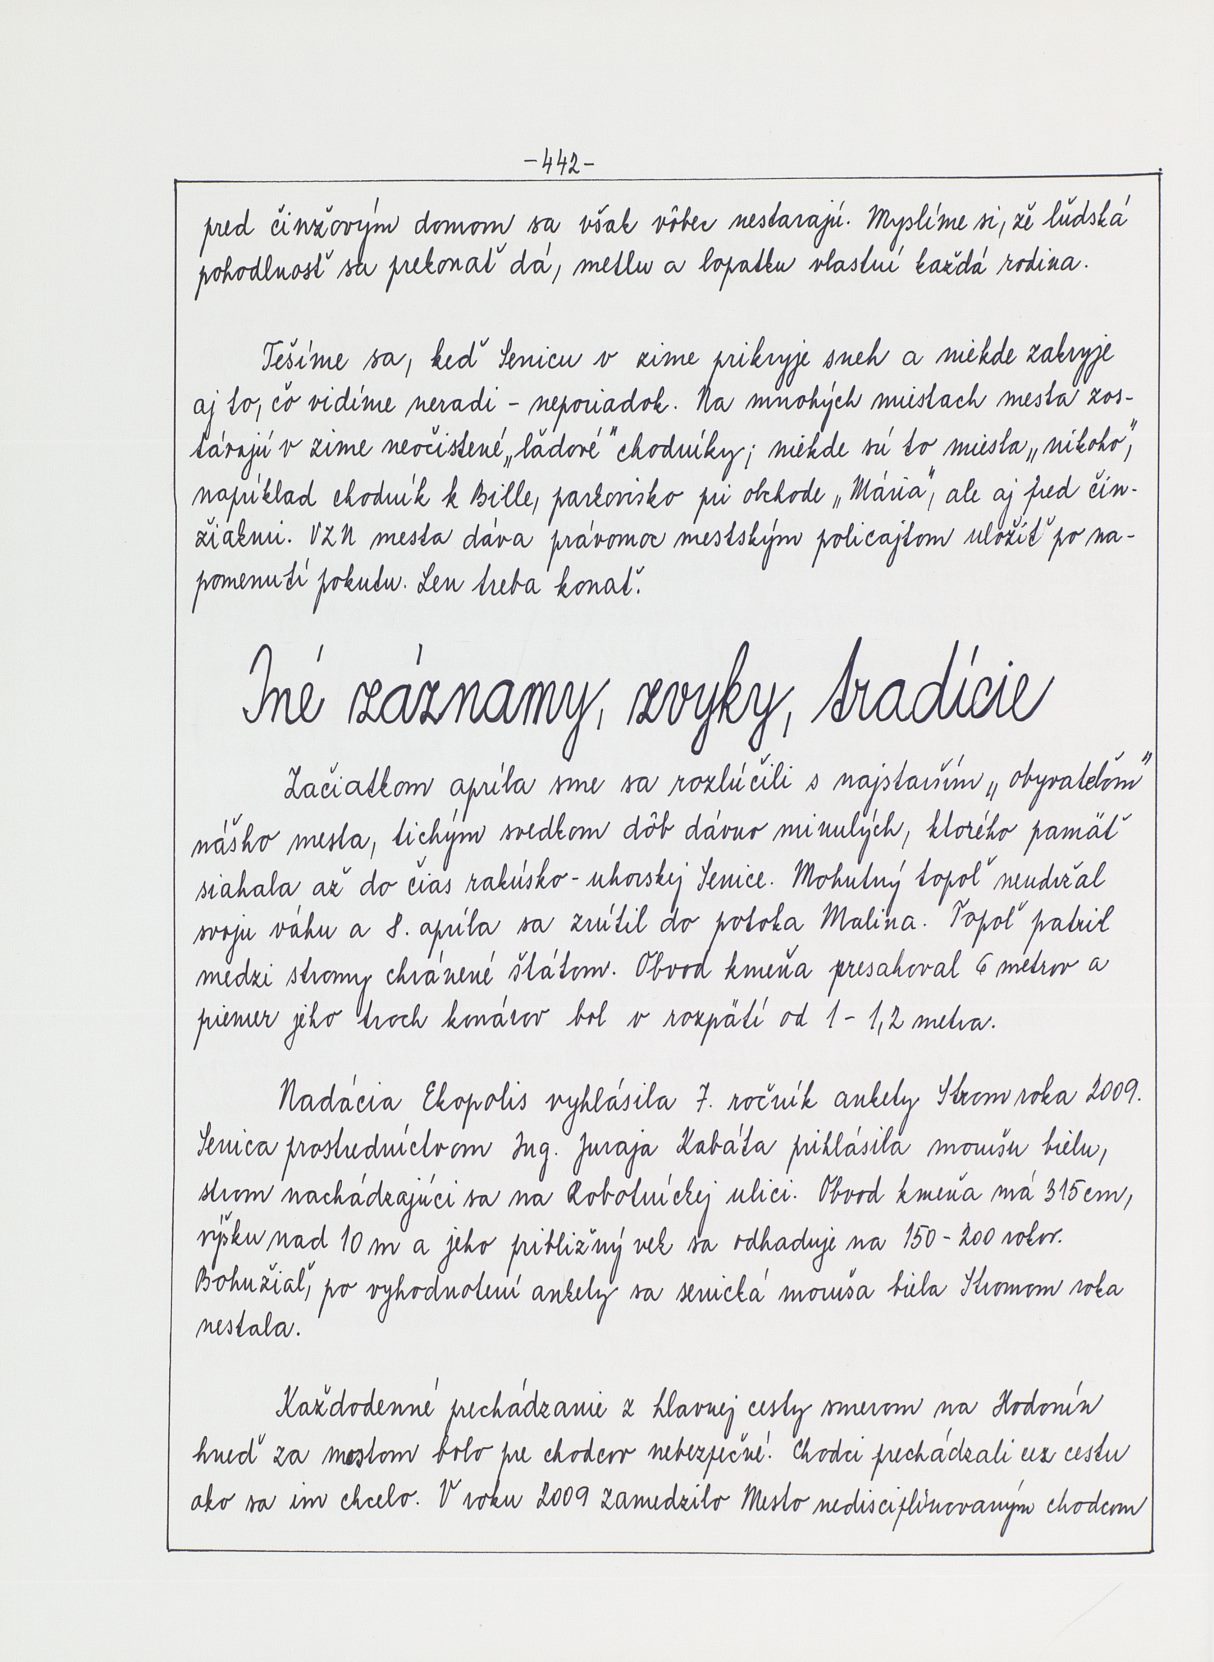 -442-
pred činžovým domom sa však vôbec nestarajú. Myslíme si, že ľudská
pohodlnosť sa prekonať dá, metlu a lopatku vlastní každá rodina.
Tešíme sa, keď Senicu v zime prikryje sneh a niekde zakryje
aj to, čo vidíme neradi - neporiadok. Na mnohých miestach mesta zos-
távajú v zime neočistené „ľadové" chodníky; niekde sú to miesta „nikoho",
napríklad chodník k Bille, parkovisko pri obchode „Mária", ale aj pred čin-
žiakmi. VZN mesta dáva právomoc mestským policajtom uložiť po na-
pomenutí pokutu. Len treba konať.
Iné záznamy, zvyky, tradície
Začiatkom apríla sme sa rozlúčili s najstarším „obyvateľom"
nášho mesta, tichým svedkom dôb dávno minulých, ktorého pamäť
siahala až do čias rakúsko-uhorskej Senice. Mohutný topoľ neudržal
svoju váhu a 8. apríla sa zrútil do potoka Malina. Topoľ patril
medzi stromy chránené štátom. Obvod kmeňa presahoval 6 metrov a
priemer jeho troch konárov bol v rozpätí od 1 - 1,2 metra.
Nadácia Ekopolis vyhlásila 7. ročník ankety Strom roka 2009.
Senica prostredníctvom Ing. Juraja Kabáta prihlásila morušu bielu,
strom nachádzajúci sa na Robotníckej ulici. Obvod kmeňa má 315 cm,
výšku nad 10 m a jeho približný vek sa odhaduje na 150-200 rokov.
Bohužiaľ, po vyhodnotení ankety sa senická moruša biela Stromom roka
nestala.
Každodenné prechádzanie z hlavnej cesty smerom na Hodonín
hneď za mostom bolo pre chodcov nebezpečné. Chodci prechádzali cez cestu
ako sa im chcelo. V roku 2009 zamedzilo Mesto nedisciplinovaným chodcom